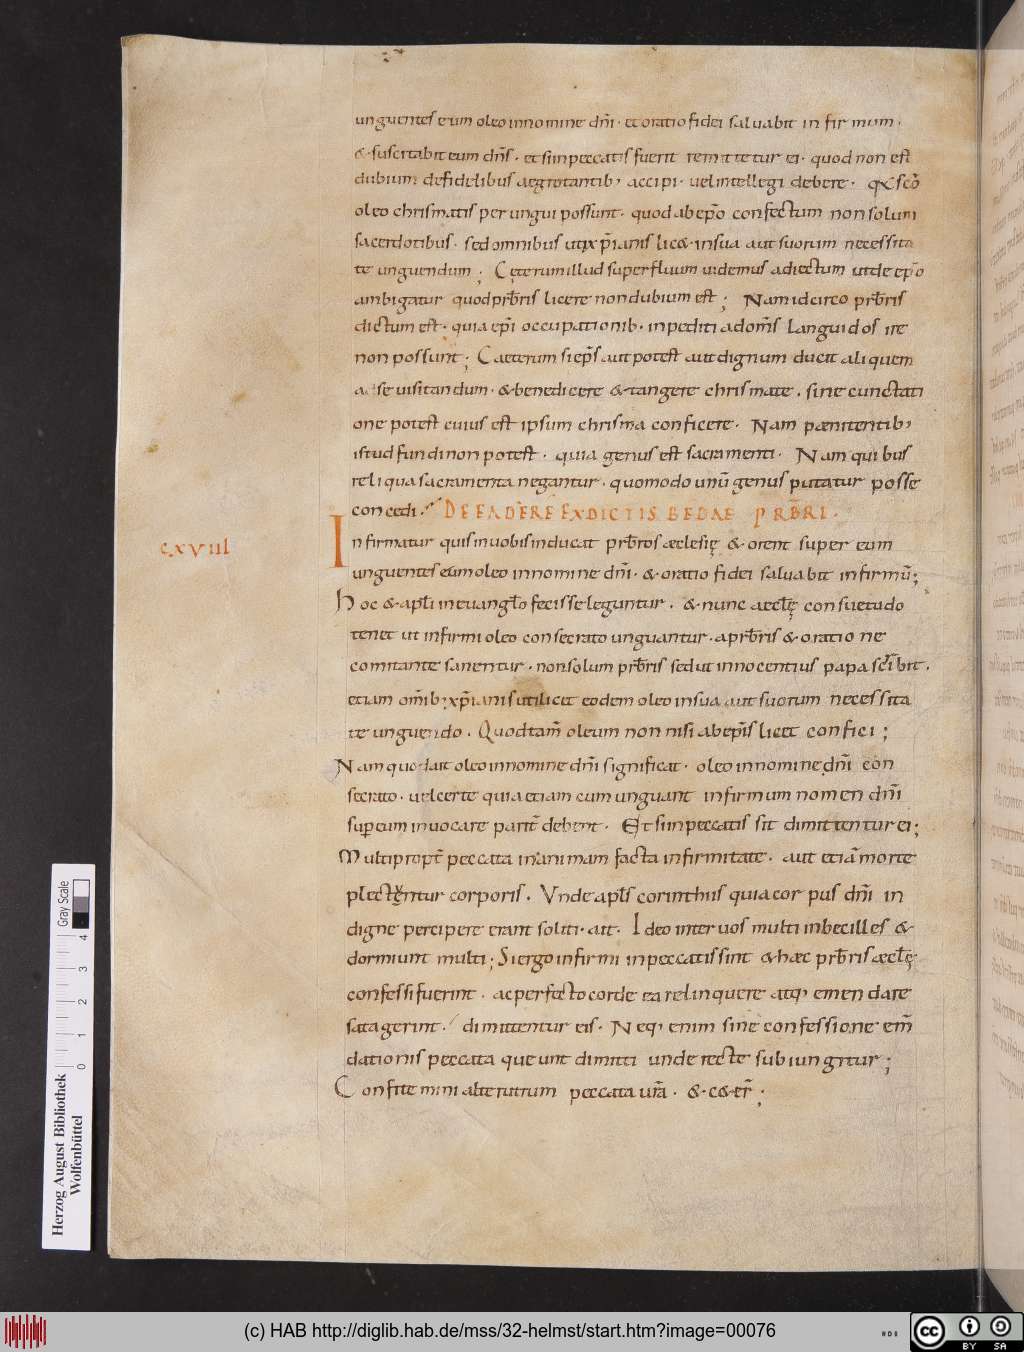 unguentes eum oleo in nomine dñi· et oratio fidei saluabit infirmum·
&suscitabit eum dñs· et si in peccatis fuerit remittetur ei· quod non est
dubium de fidelibus aegrotantib; accipi· uel intellegi debere· qui scõ
oleo chrismatis perungui possunt· quod ab ep̃o confectum non solum
sacerdotibus· sed omnibus uti xp̃ianis lic&· in sua aut suorum necessita
te unguendum; Cęterum illud superfluum uidemus adiectum ut de ep̃o
ambigatur quod prb̃ris licere non dubium est; Nam idcirco prb̃ris
dictum est· quia ep̃i occupationib· inpediti ad om̃s languidos ire
non possunt; Caeterum si ep̃s aut potest aut dignum ducit aliquem
a se uisitandum· & benedicere & tangere chrismate· sine cunctati
one potest cuius est ipsum chrisma conficere· Nam pænitentib;
istud fundi non potest· quia genus est sacramenti· Nam quibus
reliqua sacramenta negantur· quomodo unũ genus putatur posse
concedi· DE EADẼ RE EX DICTIS BEDAE PRB̃RI·
cxviiii
Infirmatur quis in uobis inducat prb̃ros æclesię & orent super eum
unguentes eũm oleo in nomine dñi· & oratio fidei saluabit infirmũ;
Hoc & apl̃i in euangl̃o fecisse leguntur· & nunc aecl̃ę consuetudo
tenet ut infirmi oleo consecrato unguantur· a prb̃ris & oratione
comitante sanentur· non solum prb̃ris sed ut innocentius papa scr̃ibit·
etiam om̃ib; xp̃ianis uti licet eodem oleo in sua aut suorum necessita
te unguendo· Quod tam̃ oleum non nisi ab ep̃is licet confici;
Nam quod ait oleo in nomine dñi significat· oleo in nomine dñi con
secrato· uel certe quia etiam cum unguant infirmum nomen dñi
super eum inuocare parit̃ debent· Et si in peccatis sit dimittentur ei;
Multi propt̃ peccata in animam facta infirmitate· aut etiã morte
plectentur corporis· Vnde apl̃s corinthiis quia corpus dñi in
digne percipere erant soliti· ait· Ideo inter uos multi inbecilles &
dormiunt multi; Si ergo infirmi in peccatis sint & hæc prb̃ris æcl̃ę
confessi fuerint· ac perfecto corde ea relinquere atq; emendare
satagerint· dimittentur eis· Neq; enim sine confessione em̃
dationis peccata queunt dimitti unde recte subiungitur;
Confitemini alterutrum peccata ur̃a· & c&er̃;
Herzog August Bibliothek
Wolfenbüttel
Gray Scale
0 1 2 3 4
(c) HAB http://diglib.hab.de/mss/32-helmst/start.htm?image=00076
cc BY SA